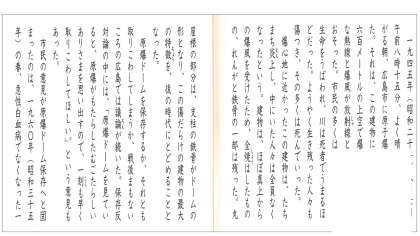 一九四五年（昭和二十
午前八時十五分、よく晴
がる朝、広島市に原子爆
た。それは、この建物に
六百メートルの上空で爆
な熱線と爆風が放射線と
おそい、市民の多くは
生命をうばわれ、川は死者でうまるほ
どだった。ようやく生き残った人々も
傷つき、その多くは死んでいった。
爆心地に近かったこの建物は、たち
まち炎上し、中にいた人々は全員なく
なったという。建物は、ほぼ真上から
の爆風を受けたため、全焼はしたもの
の、れんがと鉄骨の一部は残った。丸
屋根の部分は、支柱の鉄骨がドームの
形となり、この傷だらけの建物の最大
の特徴を、後の時代にとどめることと
なった。
原爆ドームを保存するか、それとも
取りこわしてしまうか、戦後まもない
ころの広島では議論が続いた。保存反
対論の中には、「原爆ドームを見てい
ると、原爆がもたらしたむごたらしい
ありさまを思い出すので、一刻も早く
取りこわしてほしい。」という意見も
あった。
市民の意見が原爆ドーム保存へと固
まったのは、一九六〇年（昭和三十五
年）の春、急性白血病でなくなった一